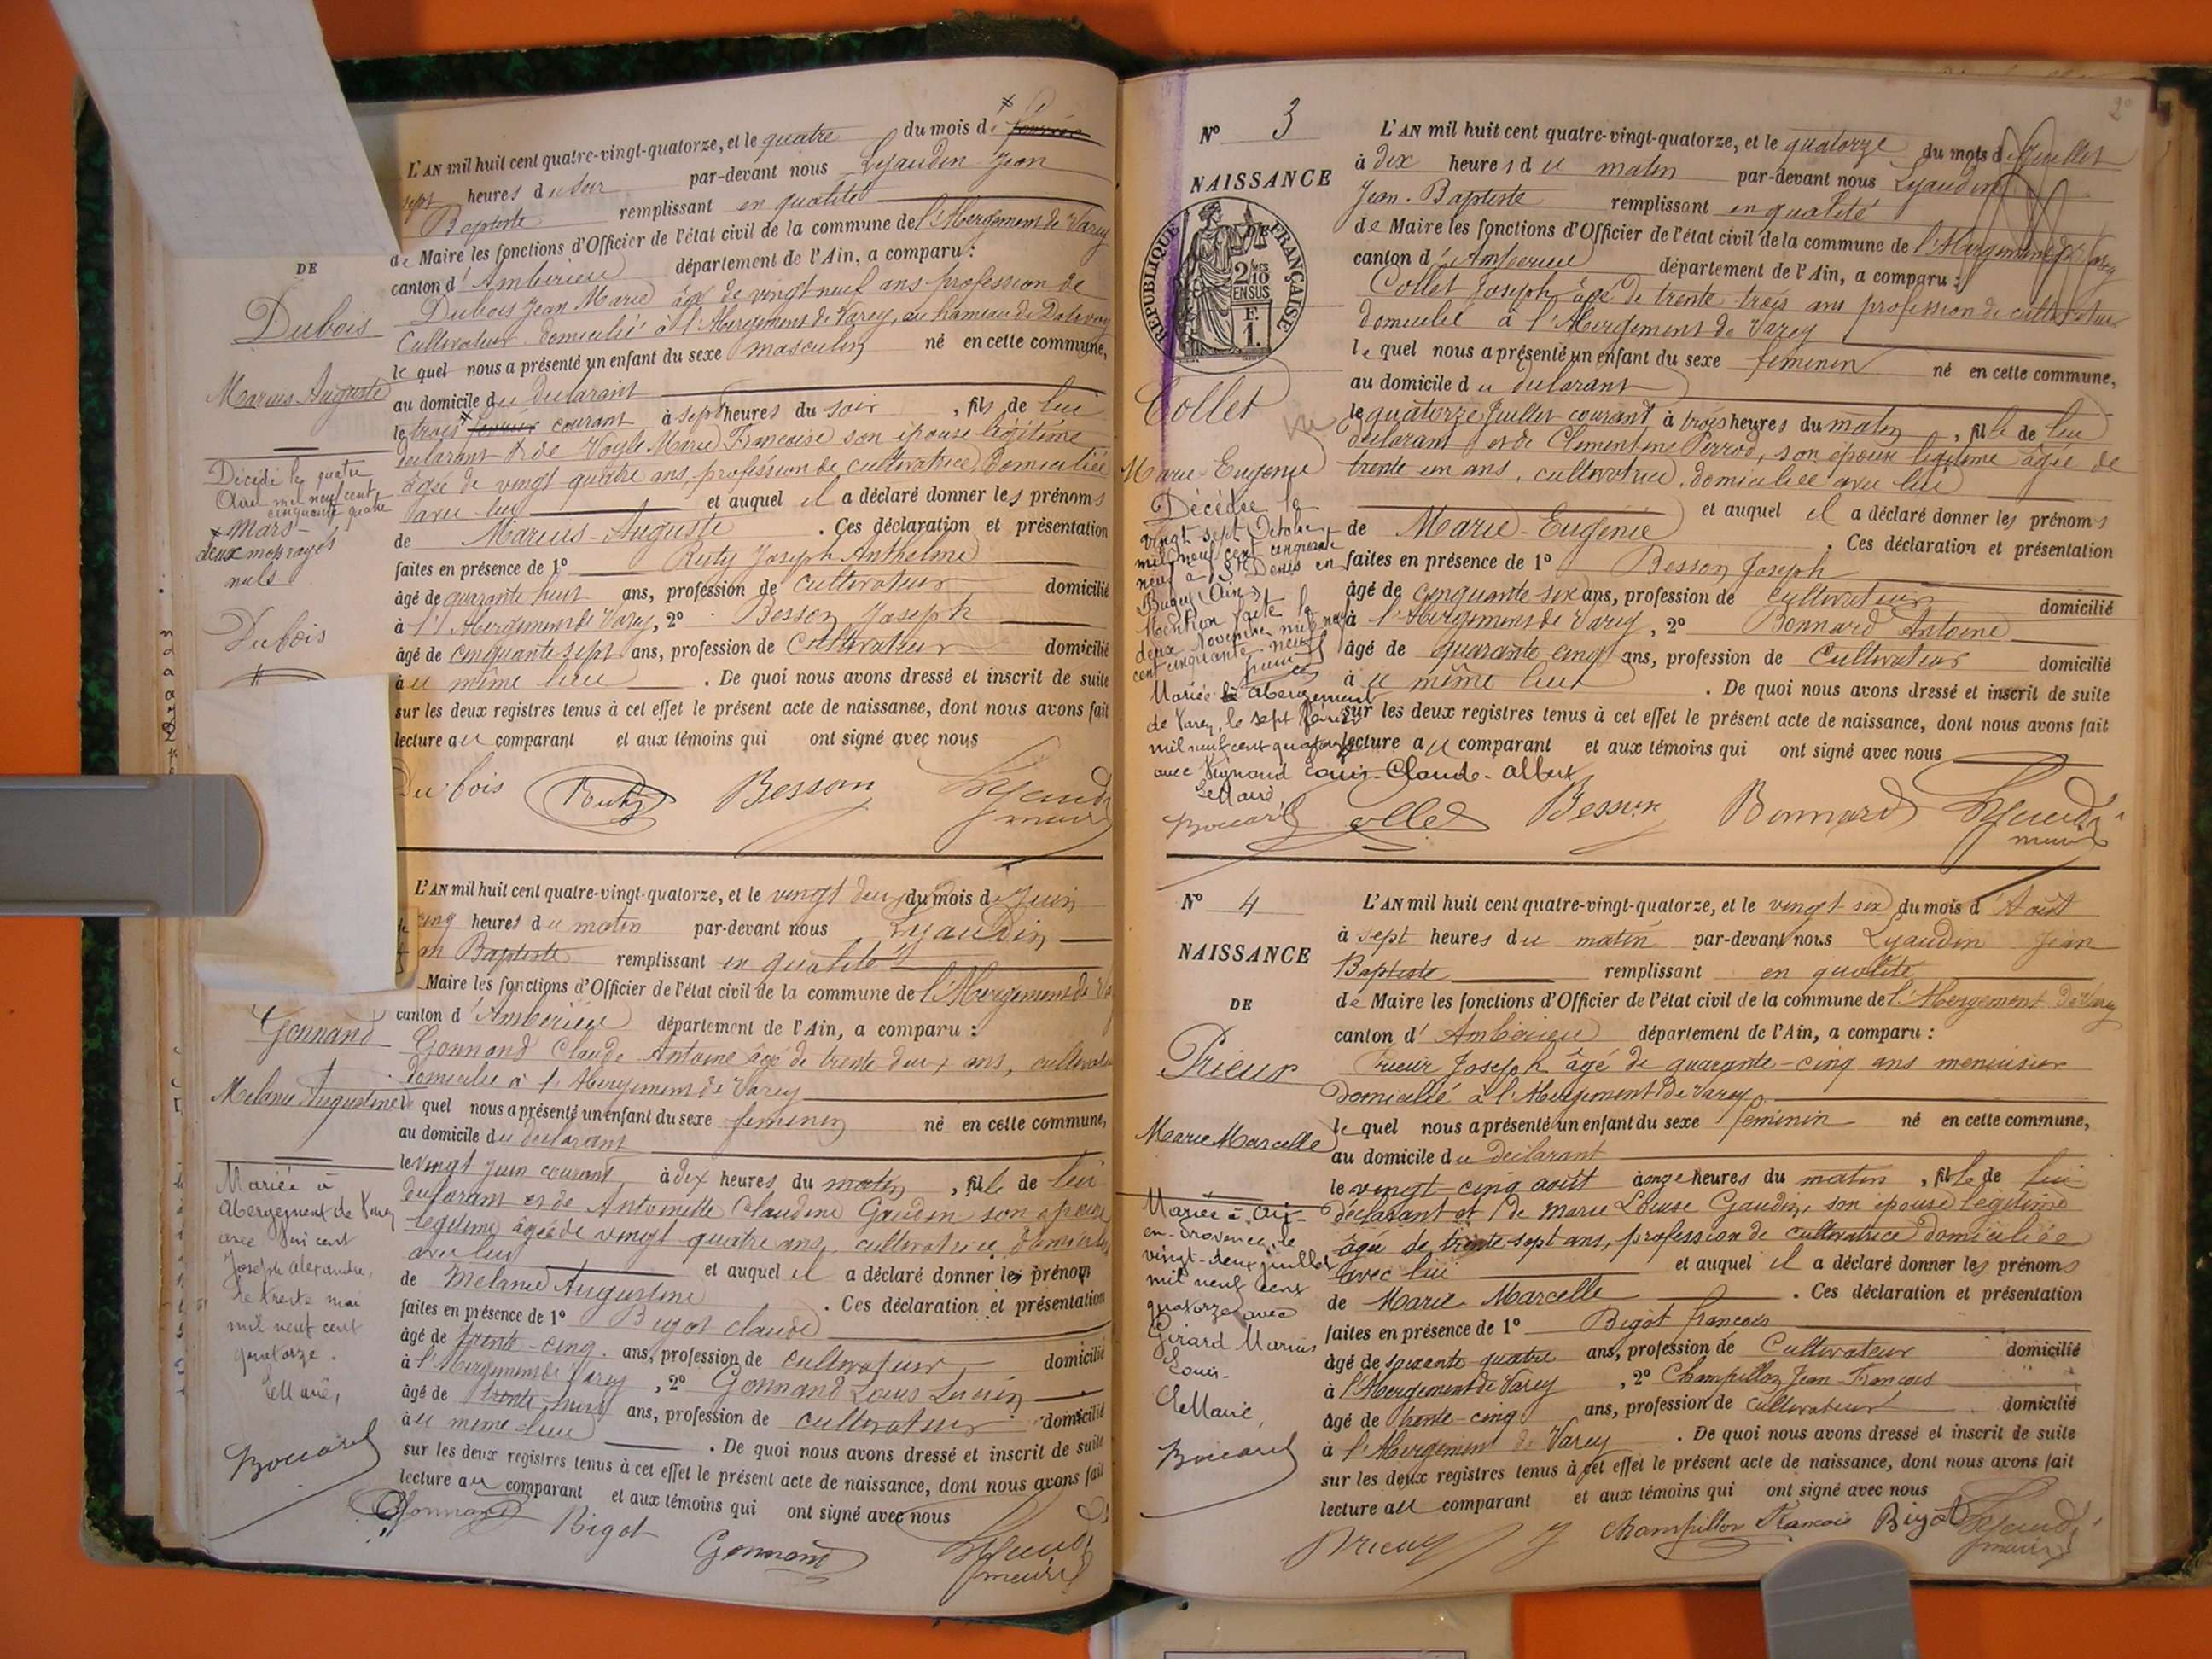 L'AN mil huit cent quatre-vingt-quatorze, et le quatre du mois de
sept heures du soir par-devant nous Lyaudin Jean
Baptiste remplissant en qualité
de Maire les fonctions d'Officier de l'état civil de la commune de l'Abergement de Varey
canton d'Ambérieu département de l'Ain, a comparu :
Dubois Jean Marie âgé de vingt neuf ans profession de
Cultivateur domicilié à l'Abergement de Varey, au hameau de
le quel nous a présenté un enfant du sexe masculin né en cette commune,
au domicile du declarant
le trois février courant à sept heures du soir, fils de lui
declarant & de Marie Françoise son épouse légitime
âgée de vingt quatre ans, profession de cultivatrice domiciliée
avec lui et auquel il a déclaré donner les prénoms
de Marius-Auguste. Ces déclaration et présentation
faites en présence de 1° Ruty Joseph Anthelme
âgé de quarante huit ans, profession de cultivateur domicilié
à l'Abergement de Varey, 2° Besson Joseph
âgé de cinquante sept ans, profession de Cultivateur domicilié
au même lieu. De quoi nous avons dressé et inscrit de suite
sur les deux registres tenus à cet effet le présent acte de naissance, dont nous avons fait
lecture au comparant et aux témoins qui ont signé avec nous
Dubois Ruty Besson
maire
DE
Dubois
Marius Auguste
Décédé le quatre
mil neuf cent
cinquante quatre
Mars
deux mots rayés
nuls
Dubois
L'AN mil huit cent quatre-vingt-quatorze, et le vingt deux du mois de Juin
cinq heures du matin par-devant nous Lyaudin
Baptiste remplissant en qualité
Maire les fonctions d'Officier de l'état civil de la commune de l'Abergement de
canton d'Ambérieu département de l'Ain, a comparu :
Gonnand Claude Antoine âgé de trente deux ans,
domicilié à l'Abergement de Varey
le quel nous a présenté un enfant du sexe feminin né en cette commune,
au domicile du declarant
le vingt Juin courant à dix heures du matin, fille de lui
declarant et de Antoinette Claudine Gaudin son épouse
legitime âgée de vingt quatre ans, cultivatrice
avec lui et auquel il a déclaré donner les prénoms
de Melanie Augustine. Ces déclaration et présentation
faites en présence de 1° Bigot Claude
âgé de trente-cinq ans, profession de cultivateur domicilié
à l'Abergement de Varey, 2° Gonnand Louis
âgé de ans, profession de cultivateur domicilié
au même lieu. De quoi nous avons dressé et inscrit de suite
sur les deux registres tenus à cet effet le présent acte de naissance, dont nous avons fait
lecture au comparant et aux témoins qui ont signé avec nous
Gonnand Bigot Gonnand
maire
Gonnand
Melanie Augustine
Mariée à
Abergement de Varey
avec
Joseph Alexandre,
le trente mai
mil neuf cent
quatorze.
Le Maire,
N° 3
NAISSANCE
RÉPUBLIQUE FRANÇAISE
2/10 EN SUS
F. 1.
Collet
Marie-Eugénie
Décédée le
vingt sept Octobre
mil neuf cent cinquante
neuf à St Denis en
Bugey (Ain)
Mention faite le
deux Novembre mil neuf
cent cinquante neuf
Mariée à Abergement
de Varey, le sept février
mil neuf cent quatorze
avec Vignand Louis-Claude-Albert
Le Maire,
L'AN mil huit cent quatre-vingt-quatorze, et le quatorze du mois de Juillet
à dix heures du matin par-devant nous Lyaudin
Jean-Baptiste remplissant en qualité
de Maire les fonctions d'Officier de l'état civil de la commune de l'Abergement de Varey
canton d'Ambérieu département de l'Ain, a comparu :
Collet Joseph âgé de trente trois ans profession de cultivateur
domicilié à l'Abergement de Varey
le quel nous a présenté un enfant du sexe feminin né en cette commune,
au domicile du declarant
le quatorze Juillet courant à trois heures du matin, fille de lui
declarant et de Clementine Perrod, son épouse légitime âgée de
trente un ans, cultivatrice, domiciliée avec lui
et auquel il a déclaré donner les prénoms
de Marie-Eugénie. Ces déclaration et présentation
faites en présence de 1° Besson Joseph
âgé de cinquante-six ans, profession de cultivateur domicilié
à l'Abergement de Varey, 2° Bonnard Antoine
âgé de quarante-cinq ans, profession de Cultivateur domicilié
au même lieu. De quoi nous avons dressé et inscrit de suite
sur les deux registres tenus à cet effet le présent acte de naissance, dont nous avons fait
lecture au comparant et aux témoins qui ont signé avec nous
Collet Besson Bonnard
maire
N° 4
NAISSANCE
DE
Prieur
Marie Marcelle
Mariée à Aix-
en-Provence, le
vingt-deux juillet
mil neuf cent
quatorze avec
Girard Marius
Louis.
Le Maire,
L'AN mil huit cent quatre-vingt-quatorze, et le vingt six du mois d'Août
à sept heures du matin par-devant nous Lyaudin Jean
Baptiste remplissant en qualité
de Maire les fonctions d'Officier de l'état civil de la commune de l'Abergement de Varey
canton d'Ambérieu département de l'Ain, a comparu :
Prieur Joseph âgé de quarante-cinq ans menuisier
domicilié à l'Abergement de Varey
le quel nous a présenté un enfant du sexe féminin né en cette commune,
au domicile du déclarant
le vingt-cinq août à onze heures du matin, fille de lui
déclarant et de Marie Louise Gaudin, son épouse légitime
âgée de trente-sept ans, profession de cultivatrice domiciliée
avec lui et auquel il a déclaré donner les prénoms
de Marie Marcelle. Ces déclaration et présentation
faites en présence de 1° Bigot François
âgé de soixante quatre ans, profession de Cultivateur domicilié
à l'Abergement de Varey, 2° Champillon Jean-François
âgé de trente-cinq ans, profession de cultivateur domicilié
à l'Abergement de Varey. De quoi nous avons dressé et inscrit de suite
sur les deux registres tenus à cet effet le présent acte de naissance, dont nous avons fait
lecture au comparant et aux témoins qui ont signé avec nous
Prieur Champillon François Bigot
maire